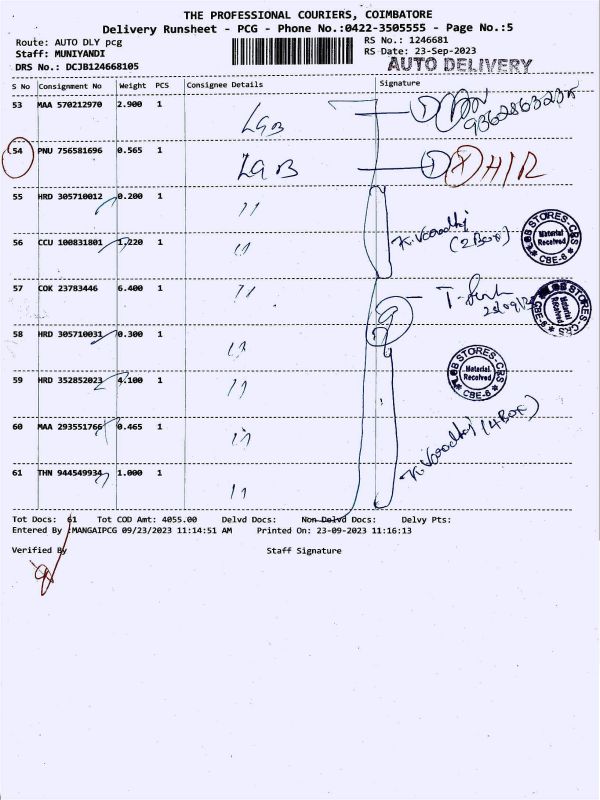 THE PROFESSIONAL COURIERS, COIMBATORE
Delivery Runsheet - PCG - Phone No.:0422-3505555 - Page No.:5
Route: AUTO DLY pcg
RS No.: 1246681
Staff: MUNIYANDI
RS Date: 23-Sep-2023
DRS No.: DCJB124668105
AUTO DELIVERY
S No Consignment No Weight PCS Consignee Details Signature
53 MAA 570212970 2.900 1 LGB
9362863232
54 PNU 756581696 0.565 1 LGB
55 HRD 305710012 0.200 1 "
56 CCU 100831801 1.220 1 " (2 Box)
STORES-CRS Material Received CBE-6
57 COK 23783446 6.400 1 "
STORES-CRS Material Received CBE-6
58 HRD 305710031 0.300 1 "
59 HRD 352852023 4.100 1 "
STORES-CRS Material Received CBE-6
60 MAA 293551766 0.465 1 " (4 Box)
61 THN 944549934 1.000 1 "
Tot Docs: 61 Tot COD Amt: 4055.00 Delvd Docs: Non Delvd Docs: Delvy Pts:
Entered By :MANGAIPCG 09/23/2023 11:14:51 AM Printed On: 23-09-2023 11:16:13
Verified By Staff Signature